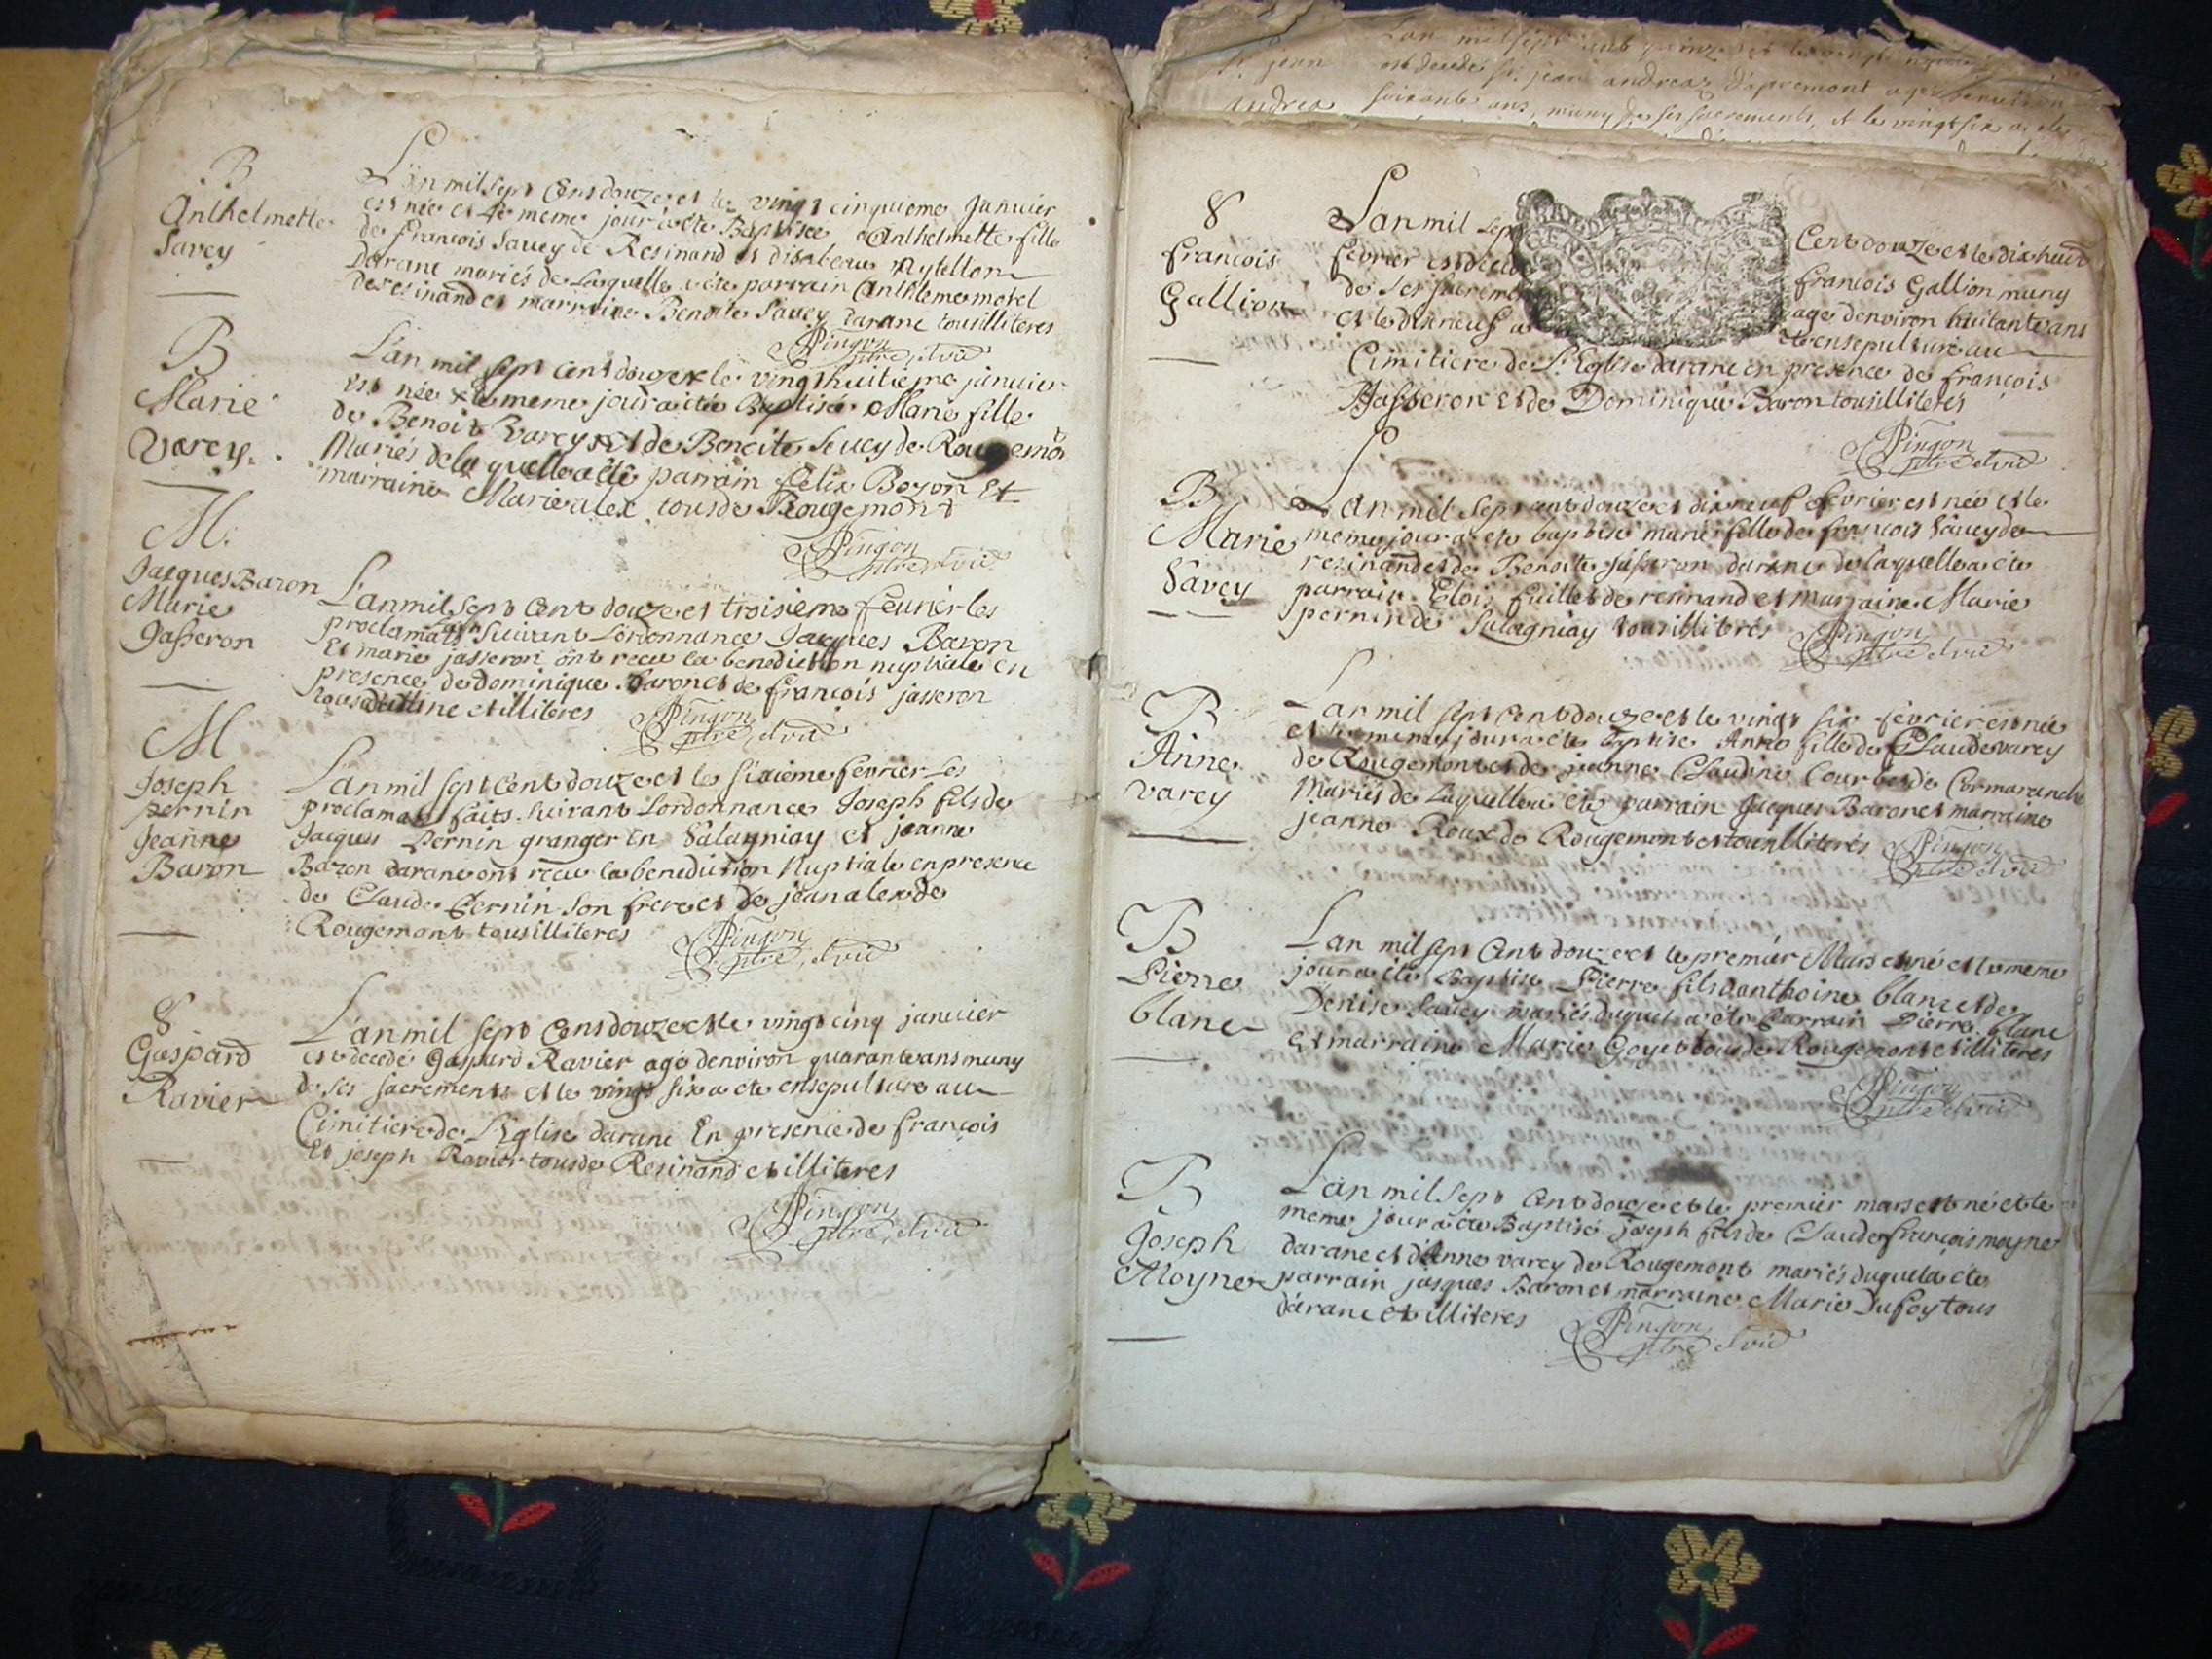 B
Anthelmette
Savey
Lan mil sept Cens douze et le vingt cinquieme Janvier
est née et le meme jour a ete Baptisée Anthelmette fille
de françois Savey de Resinand et disabeau
Darane mariés de Laquelle a ete parrain Anthleme morel
de resinand et marraine Benoite Savey darane tous illiteres
Pingon
ptre et vic
B
Marie
Varey
Lan mil sept cent douze et le vingt huitieme janvier
est née et le meme jour a été Baptisée Marie fille
de Benoit Varey et de Benoite Savey de Rougemōt
Mariés de la quelle a été parrain felix Bozon Et
marraine Marie alex tous de Rougemont
Pingon
ptre et vic
M.
Jacques Baron
Marie
Jasseron
Lan mil sept Cent douze et troisieme feurier les
proclamats suivant Lordonnance Jacques Baron
Et marie jasseron ont receu la benediction nuptiale en
presence de dominique Baron et de françois jasseron
tous et illiteres
Pingon
ptre et vic
M
Joseph
pernin
Jeanne
Baron
Lan mil sept cent douze et le sixieme fevrier Les
proclamats faits suivant Lordonnance Joseph fils de
Jacques Pernin granger En Salagniay et jeanne
Bazon darane ont receu la benediction Nuptiale en presence
de Claude Pernin son frere et de jean alex de
Rougemont tous illiteres
Pingon
ptre et vic
8
Gaspard
Ravier
Lan mil sept Cens douze et le vingt cinq janvier
est decedé Gaspard Ravier agé denviron quarante ans muny
de ses sacrements et le vingt six a ete ensepulture au
Cimitiere de LEglise darane En presence de françois
Et joseph Ravier tous de Resinand et illiteres
Pingon
ptre et vic
Lan mil sept cent quinze et le vingt
St jean est decedé st jean andreaz d'apremont agé denviron
Andrea soixante ans, muny de ses sacrements, et le vingt six a ete
8
francois
Gallion
Lan mil sept Cent douze et le dix huit
fevrier est decede francois Gallion muny
de ses sacrements age denviron huitante ans
et le dix neuf a ete ensepulture au
Cimitiere de L'Eglise darane en presence de françois
Jasseron et de Dominique Baron tous illiteres
Pingon
ptre et vic
B
Marie
Savey
Lan mil Sept cent douze et dix neuf fevrier est née et le
meme jour a ete baptisée marie fille de francois Savey de
resinand et de Benoite jasseron darane de laquelle a ete
parrain Eloi fuillet de resinand et marraine Marie
pernin de Salagniay tous illiterés
Pingon
ptre et vic
B
Anne
Varey
Lan mil sept cent douze et le vingt six fevrier est née
et le meme jour a ete baptisée Anne fille de Claude varey
de Rougemont et de jeanne Claudine Courbet de Cormaranche
Mariés de Laquelle a été parrain Jacques Baron et marraine
jeanne Roux de Rougemont et tous illiterés
Pingon
ptre et vic
B
Pierre
blanc
Lan mil sept Cent douze et le premier Mars est né et le meme
jour a ete Baptisé Pierre fils danthoine blanc et de
Denise Savey mariés duquel a été Parrain Pierre blanc
Et marraine Marie Goyet tous de Rougemont et illiteres
Pingon
ptre et vic
B
Joseph
Moyne
Lan mil Sept Cent douze et le premier mars est né et le
meme jour a été Baptisé joseph fils de Claude françois moyne
darane et d'Anne varey de Rougemont mariés duquel a été
parrain jacques Baron et marraine Marie Dufoy tous
darane et illiteres
Pingon
ptre et vic